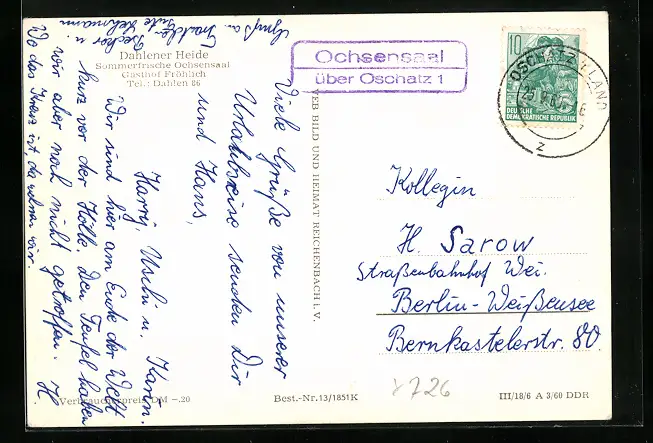 Dahlener Heide
Sommerfrische Ochsensaal
Gasthof Fröhlich
Tel.: Dahlen 86
Ochsensaal
über Oschatz 1
10
DEUTSCHE
DEMOKRATISCHE REPUBLIK
OSCHATZ LAND
z
VEB BILD UND HEIMAT REICHENBACH i. V.
Viele Grüße von unserer
Urlaubsreise senden Dir
und Hans,
Harry, Uschi u. Karin.
Wir sind hier am Ende der Welt
kurz vor der Hölle. Den Teufel haben
wir aber noch nicht getroffen. H
Wo das Kreuz ist, da wohnen wir.
Gruß a.
Becker u.
Kollegin
H. Sarow
Straßenbahnhof Wei.
Berlin-Weißensee
Bernkastelerstr. 80
Verbraucherpreis DM -.20
Best.-Nr. 13/1851K
x726
III/18/6 A 3/60 DDR